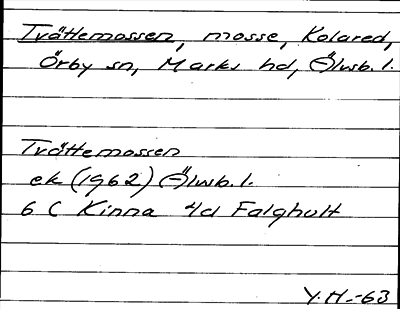 Tvättemossen, mosse, Kolared,
Örby sn, Marks hd, Älvsb. l.
Tvättemossen
ek (1962) Älvsb. l.
6 C Kinna 4d Falghult
Y. H. -63